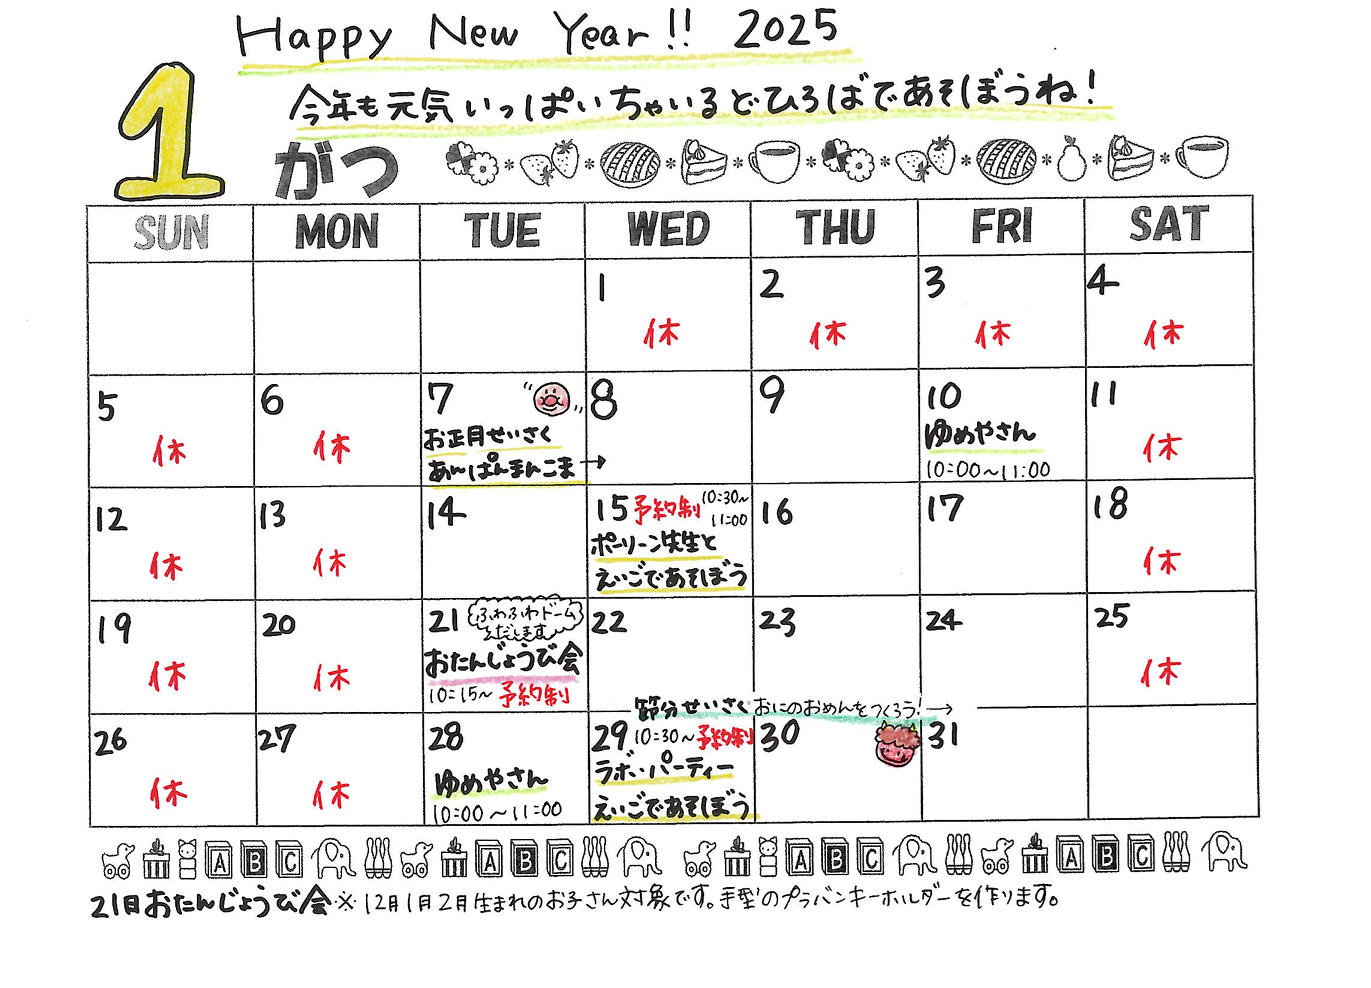 Happy New Year!! 2025
今年も元気いっぱいちゃいるどひろばであそぼうね!
1
がつ
SUN MON TUE WED THU FRI SAT
1 2 3 4
休 休 休 休
5 6 7 8 9 10 11
休 休 お正月せいさく ゆめやさん 休
あんぱんまんこま→ 10:00~11:00
12 13 14 15 予約制 10:30~ 16 17 18
11:00
休 休 ポーリーン先生と 休
えいごであそぼう
19 20 21 ふわふわドーム 22 23 24 25
だします
休 休 おたんじょうび会 休
10:15~ 予約制
節分せいさく おにのおめんをつくろう!→
26 27 28 29 10:30~予約制 30 31
休 休 ゆめやさん ラボ・パーティー
10:00~11:00 えいごであそぼう
A B C A B C A B C A B C
21日おたんじょうび会※12月1月2月生まれのお子さん対象です。手型のプラバンキーホルダーを作ります。